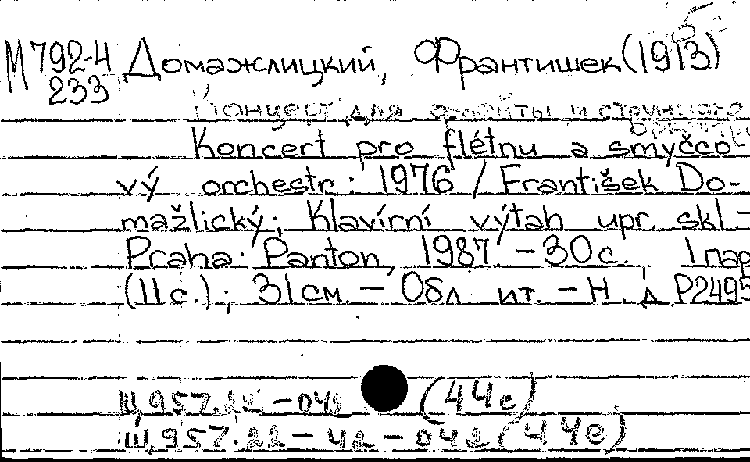 М 792-4 Домажлицкий, Франтишек (1913)
233
Концерт для флейты и струнного
Koncert pro flétnu a smyčco-
vý orchestr: 1976 / František Do-
mažlický; Klavírní výtah upr. skl –
Praha: Panton, 1987. – 30 с. 1 пар
(11 с.); 31 см. – Обл. ит. – Н. д. Р2495
Щ957.22 – 042 (44е)
Щ957.22 – 42 – 042 (44е)